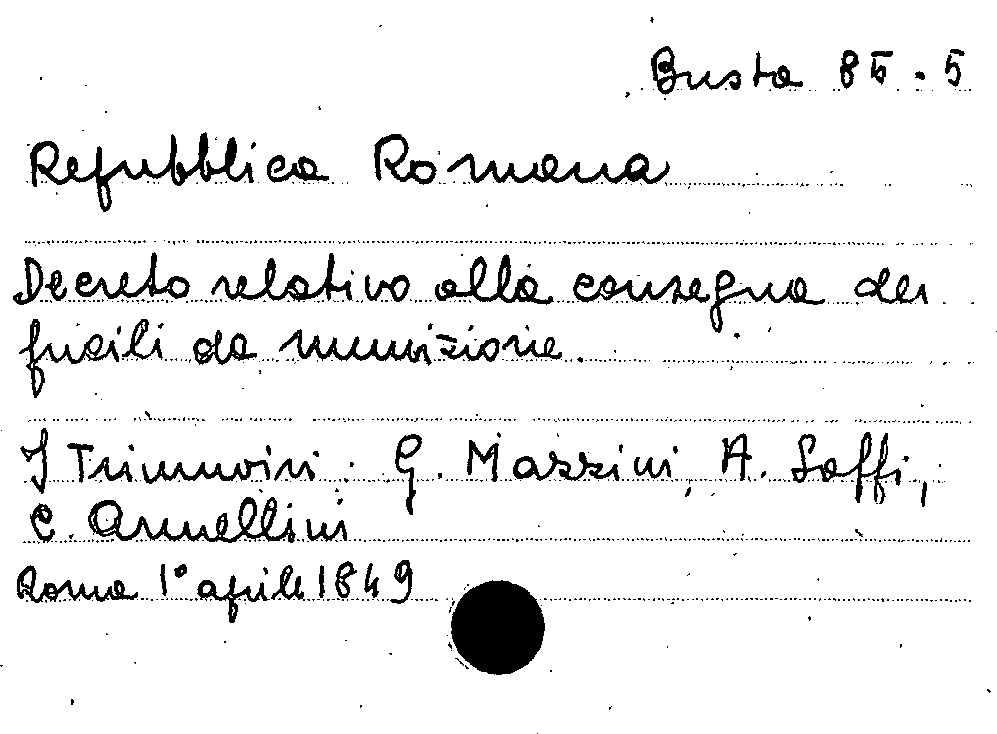 Busta 85.5
Repubblica Romana
Decreto relativo alla consegna dei
fucili da munizione.
I Triumviri: G. Mazzini, A. Saffi,
C. Armellini
Roma 1° aprile 1849